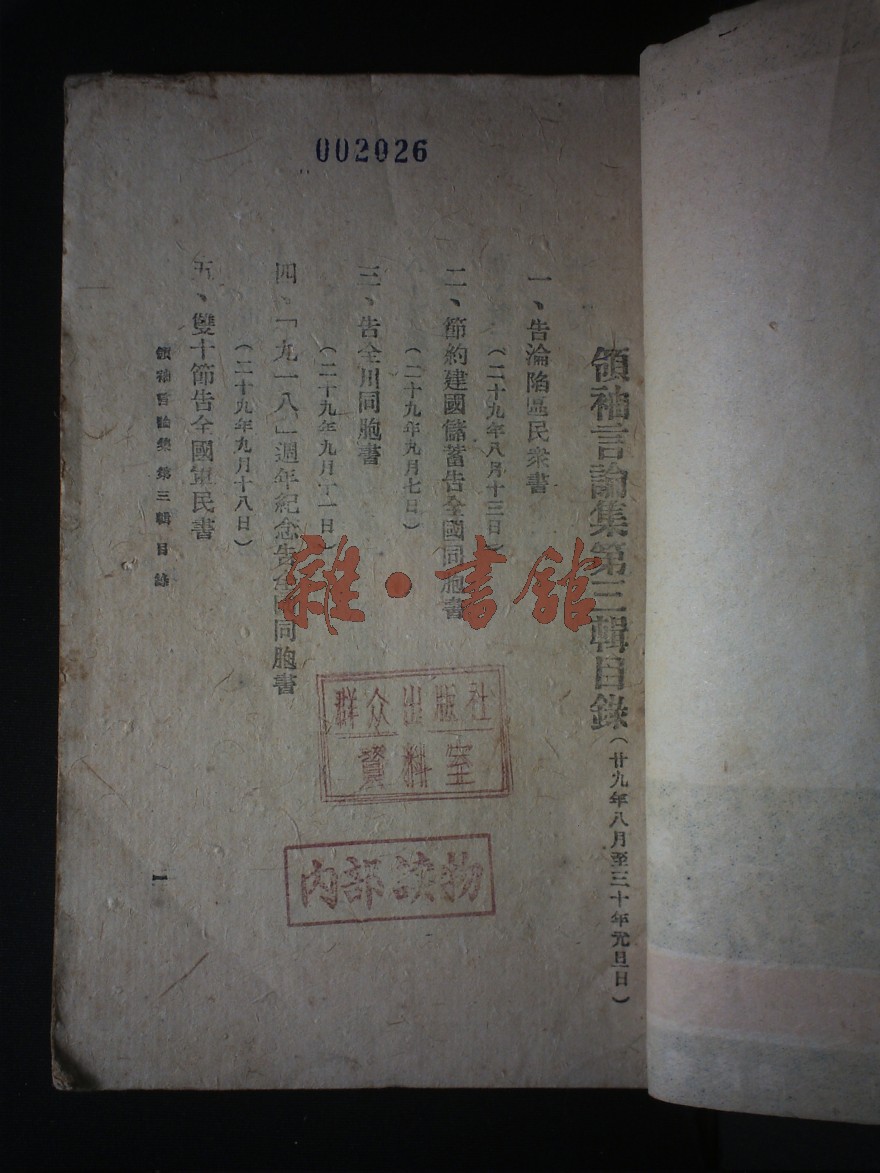 002026
領袖言論集第三輯目錄(廿九年八月至三十年元旦日)
一、告淪陷區民衆書
(二十九年八月十三日)
二、節約建國儲蓄告全國同胞書
(二十九年九月七日)
三、告全川同胞書
(二十九年九月十一日)
四、「九一八」週年紀念告全國同胞書
(二十九年九月十八日)
五、雙十節告全國軍民書
領袖言論集 第三輯 目錄
一
雜·書館
群众出版社
資料室
内部读物